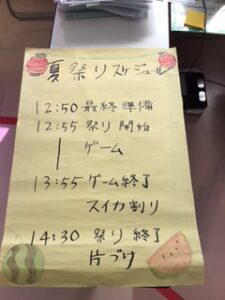 夏祭りスケジュール
12:50 最終準備
12:55 祭り開始
ゲーム
13:55 ゲーム終了
スイカ割り
14:30 祭り終了
片づけ